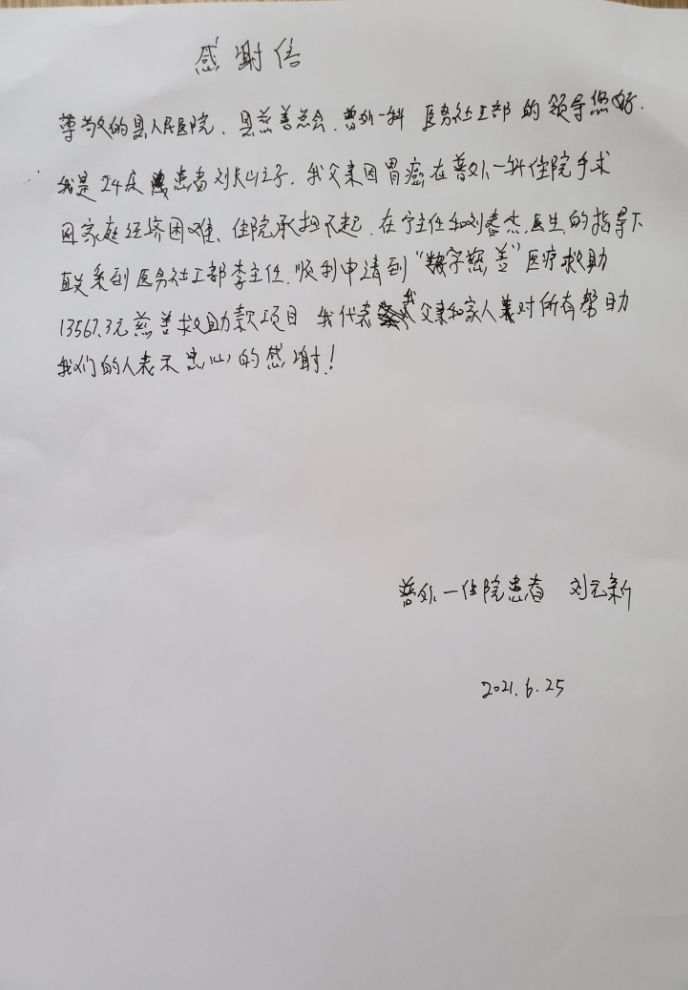 感谢信
尊敬的县人民医院、县慈善总会、普外一科 医务社工部的领导您好.
我是24床患者刘 之子. 我父亲因胃癌在普外一科住院手术
因家庭经济困难、住院承担不起. 在宁主任和刘春杰.医生的指导下
联系到医务社工部李主任. 顺利申请到“数字慈善”医疗救助
13567.3元慈善救助款项目 我代表我父亲和家人对所有帮助
我们的人表示忠心的感谢!
普外一住院患者 刘元新
2021.6.25